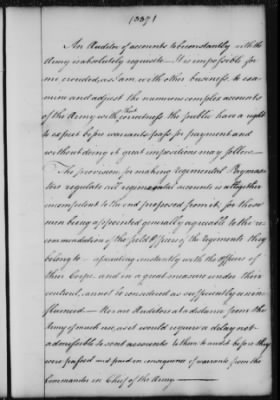 (337)
An Auditor of accounts to be constantly with the
Army is absolutely requisite — It is impossible for
me crouded, as I am, with other business to exa-
mine and adjust the numerous complex accounts
of the Army with that correctness the public have a right
to expect before warrants pass for payment and
without doing it great impositions may follow.
The provision for making regimental Paymas-
ters regulate all regimental accounts is altogether
incompetent to the end proposed from it, for these
men being appointed generally agreeable to the re-
commendation of the field Officers of the regiments they
belong to — associating constantly with the Officers of
their Corps and in a great measure under their
control, cannot be considered as sufficiently unin-
fluenced — Nor are Auditors at a distance from the
Army of much use, as it would require a delay not
admissible to send accounts to them to audit before they
were passed and paid in consequence of warrants from the
Commander in Chief of the Army —